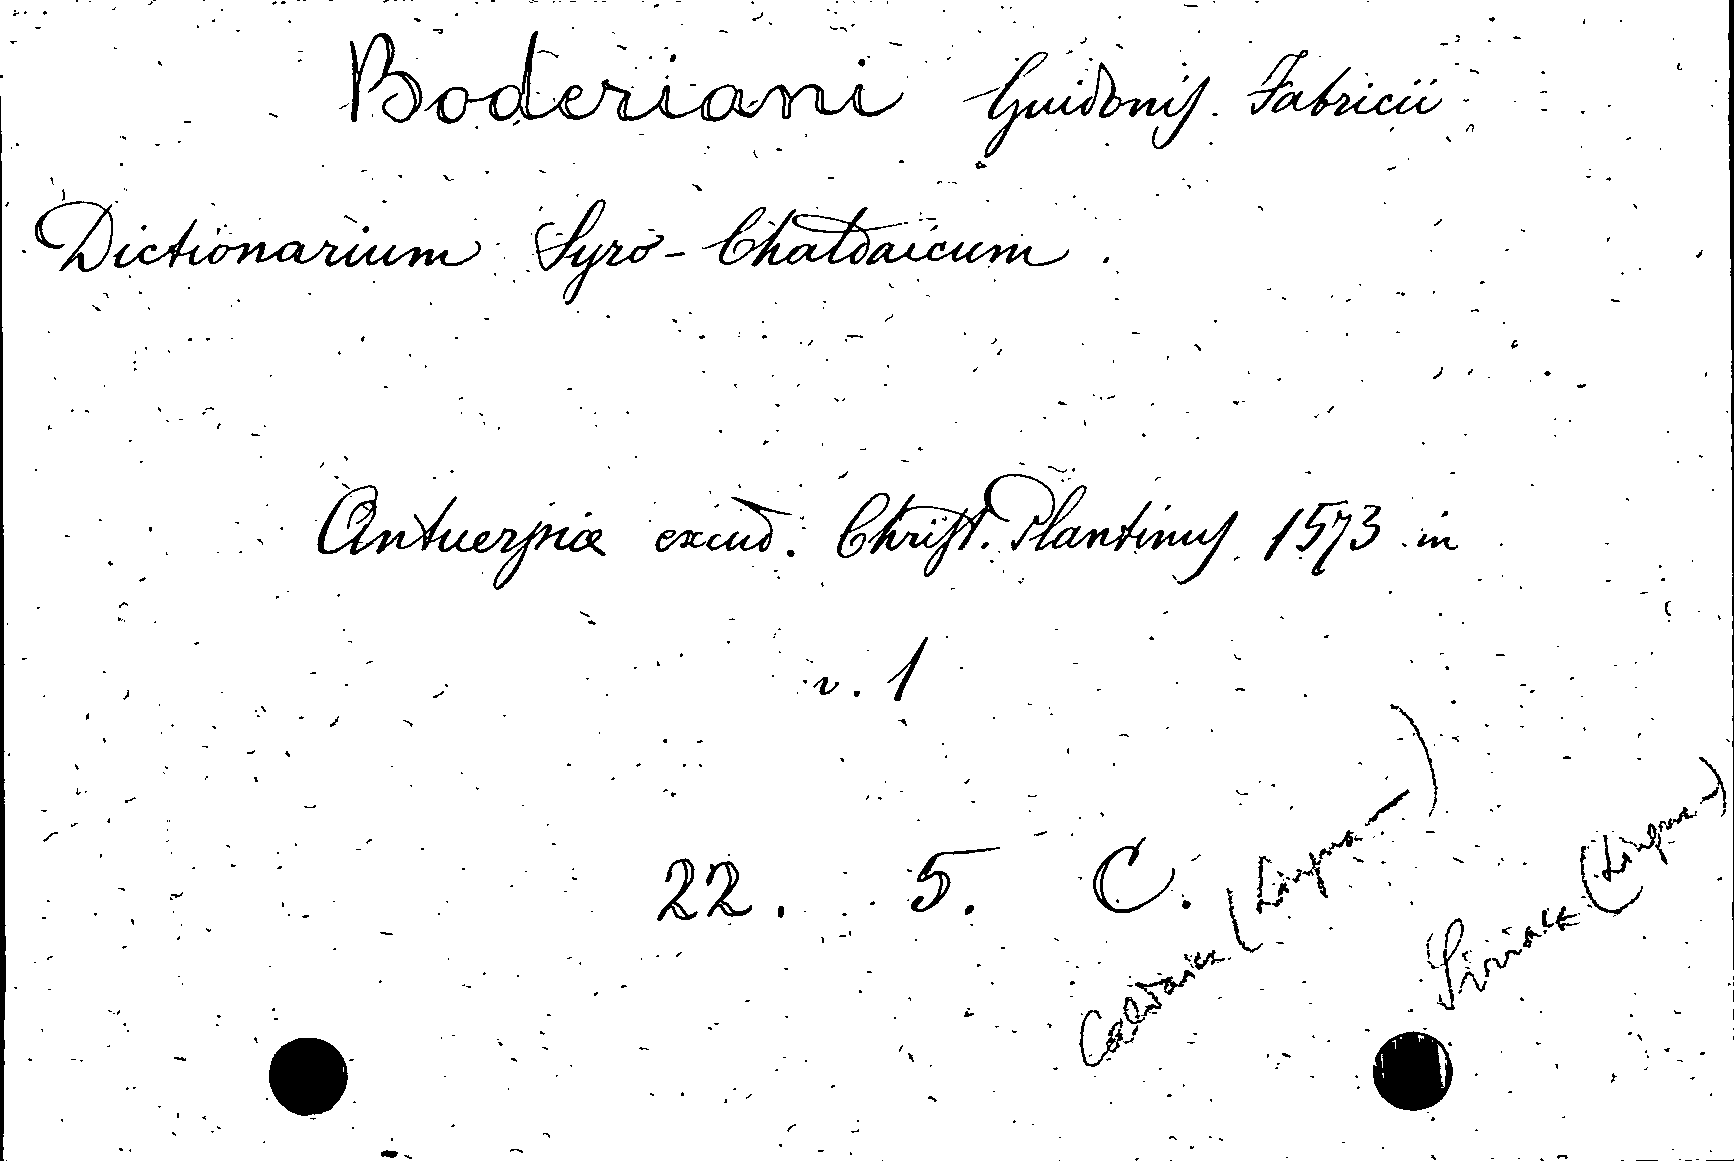 Boderiani Guidonis Fabricii
Dictionarium Syro-Chaldaicum.
Antuerpiæ excud. Christ. Plantinus 1573 in
v. 1
22. 5. C.
Caldaica (Lingua—)
Siriaca (Lingua—)